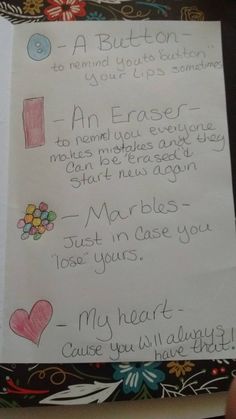 - A Button -
to remind you to "button"
your lips sometimes
- An Eraser -
to remind you everyone
makes mistakes and they
can be "erased" &
start new again
- Marbles -
Just in case you
"lose" yours.
- My heart -
Cause you will always
have that!